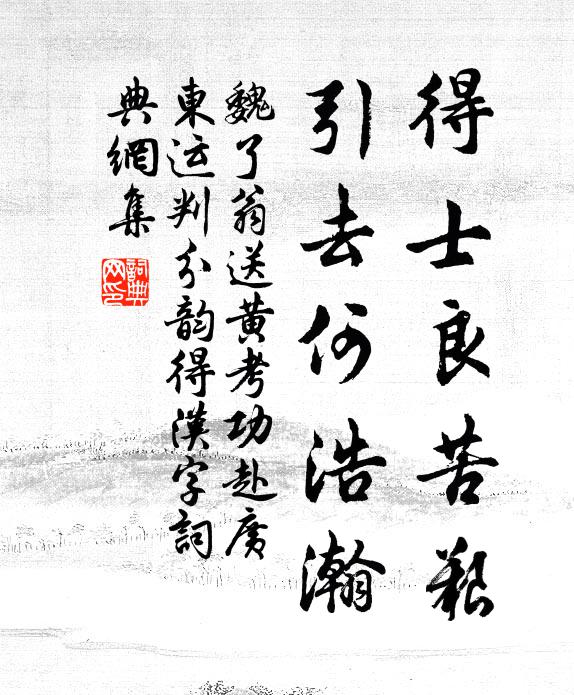 得士良苦艱
引去何浩瀚
魏了翁送黄考功赴廣
東运判分韵得漢字詞
典網集
詞典網印